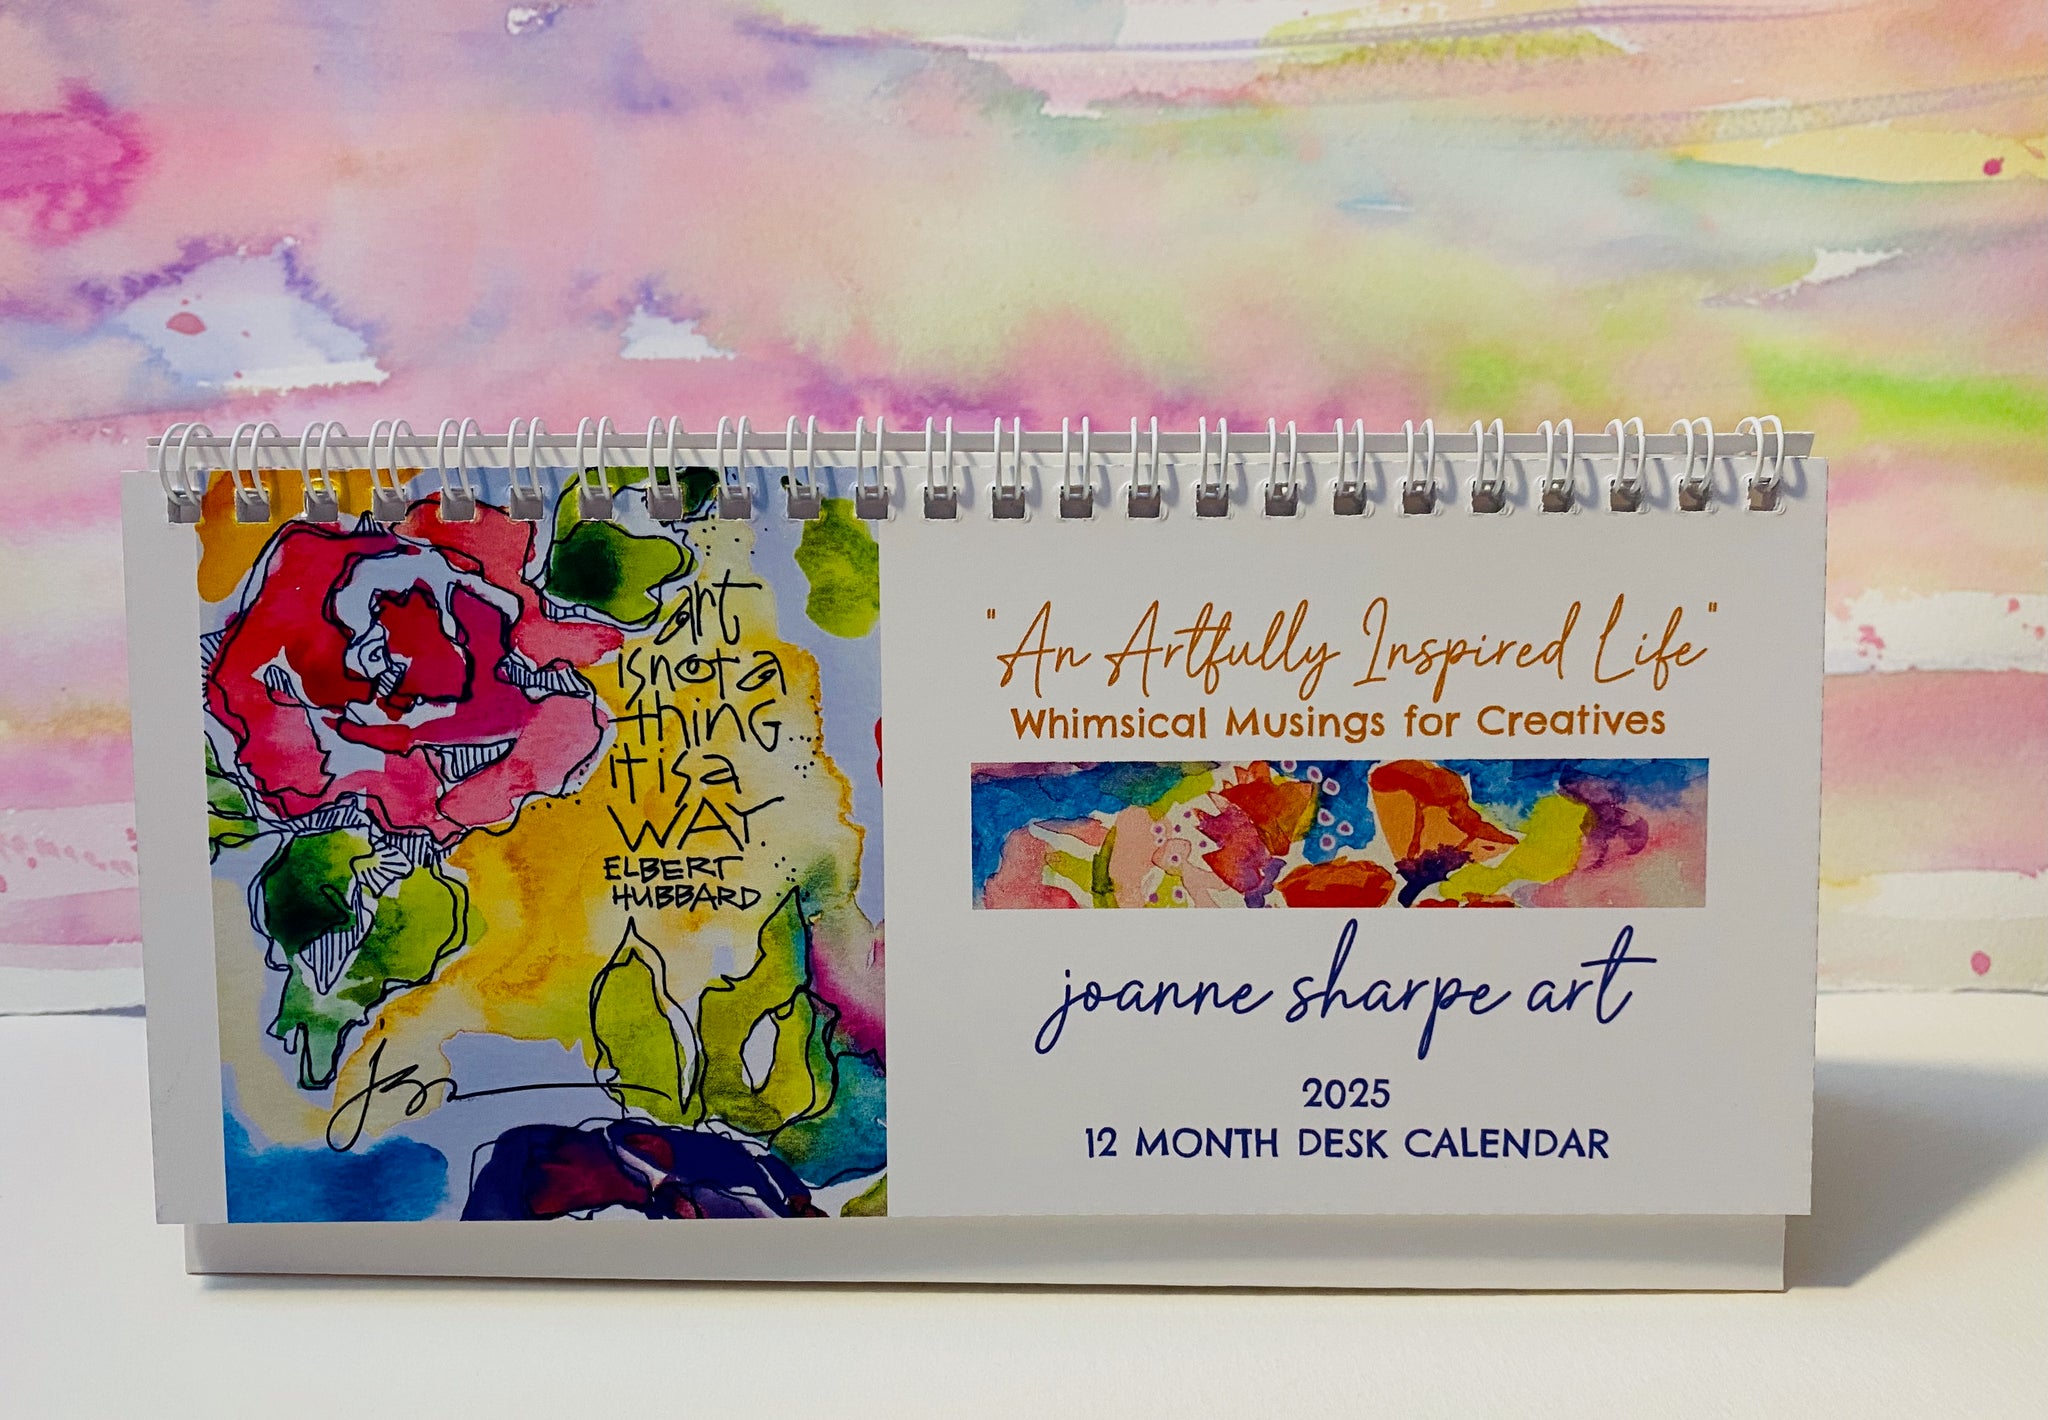 art
is not a
thing
it is a
WAY.
ELBERT
HUBBARD
"An Artfully Inspired Life"
Whimsical Musings for Creatives
joanne sharpe art
2025
12 MONTH DESK CALENDAR